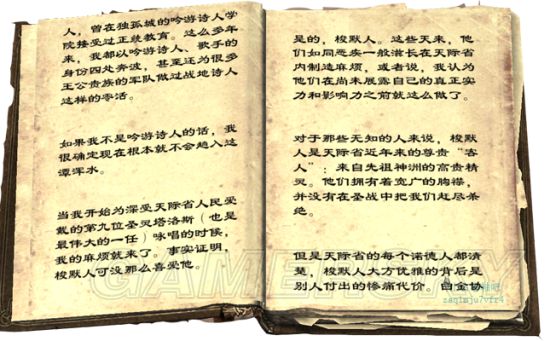 人，曾在独孤城的吟游诗人学
院接受过正统教育。这么多年
来，我都以吟游诗人、歌手的
身份四处奔波，甚至还为很多
王公贵族的军队做过战地诗人
这样的零活。
如果我不是吟游诗人的话，我
很确定现在根本就不会趟入这
潭浑水。
当我开始为深受天际省人民爱
戴的第九位圣灵塔洛斯（也是
最伟大的一任）咏唱的时候，
我的麻烦就来了。事实证明，
梭默人可没那么喜爱他。
是的，梭默人。这些天来，他
们如同恶疾一般滋长在天际省
内制造麻烦，或者说，我认为
他们在尚未展露自己的真正实
力和影响力之前就这么做了。
对于那些无知的人来说，梭默
人是天际省近年来的尊贵“客
人”：来自先祖神洲的高贵精
灵。他们拥有着宽广的胸襟，
并没有在圣战中把我们赶尽杀
绝。
但是天际省的每个诺德人都清
楚，梭默人大方优雅的背后是
别人付出的惨痛代价。白金协
GAMERSKY
zaq1mju7vfr4